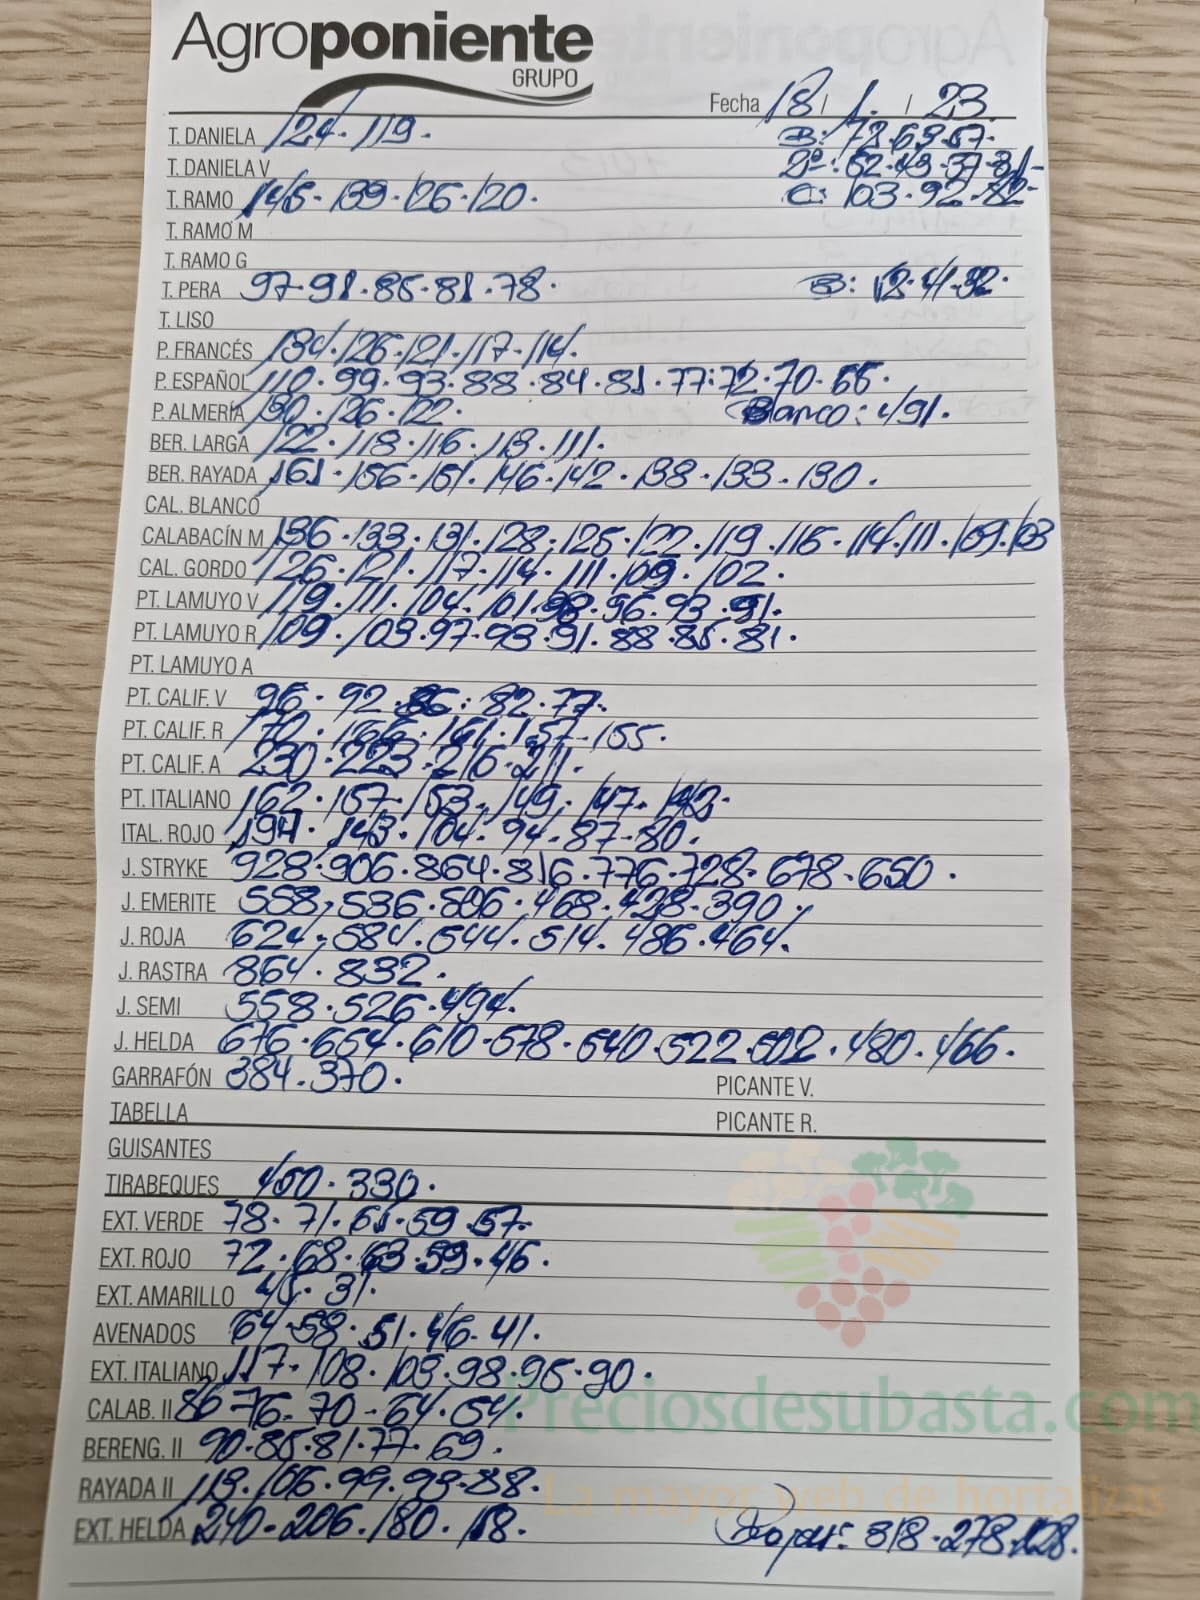 Agroponiente
GRUPO
Fecha 18 / 1. / 23
T. DANIELA 124. 119. B: 72.63.57.
T. DANIELA V 2ª: 52.43.37.31-
T. RAMO 145. 139. 126. 120. C: 103.92.82-
T. RAMO M
T. RAMO G
T. PERA 97.91.85.81.78. B: 52.41.32.
T. LISO
P. FRANCÉS 134.126.121.117.114.
P. ESPAÑOL 110.99.93.88.84.81.77.72.70.65.
P. ALMERÍA 130.126.122. Blanco: 491.
BER. LARGA 122.118.116.113.111.
BER. RAYADA 161.156.151.146.142.138.133.130.
CAL. BLANCO
CALABACÍN M 136.133.131.128.125.122.119.116.114.111.109.103
CAL. GORDO 126.121.117.114.111.109.102.
PT. LAMUYO V 119.111.104.101.98.96.93.91.
PT. LAMUYO R 109.103.97.93.91.88.85.81.
PT. LAMUYO A
PT. CALIF. V 96.92.86.82.77.
PT. CALIF. R 170.166.161.157.155.
PT. CALIF. A 230.223.216.211.
PT. ITALIANO 162.157.153.149.147.143.
ITAL. ROJO 143.104.94.87.80.
J. STRYKE 928.906.864.816.776.728.678.650.
J. EMERITE 558.536.506.468.428.390.
J. ROJA 624.584.544.514.486.464.
J. RASTRA 864.832.
J. SEMI 558.526.494.
J. HELDA 676.654.610.578.540.522.502.480.466.
GARRAFÓN 384.370. PICANTE V.
TABELLA PICANTE R.
GUISANTES
TIRABEQUES 450.330.
EXT. VERDE 78.71.65.59.57.
EXT. ROJO 72.68.63.59.46.
EXT. AMARILLO 45.31.
AVENADOS 64.58.51.46.41.
EXT. ITALIANO 117.108.103.98.95.90.
CALAB. II 86.76.70.64.54.
BERENG. II 90.85.81.77.69.
RAYADA II 113.105.99.93.88.
EXT. HELDA 240.206.180. 318.278.
Preciosdesubasta.com
La mayor web de hortalizas